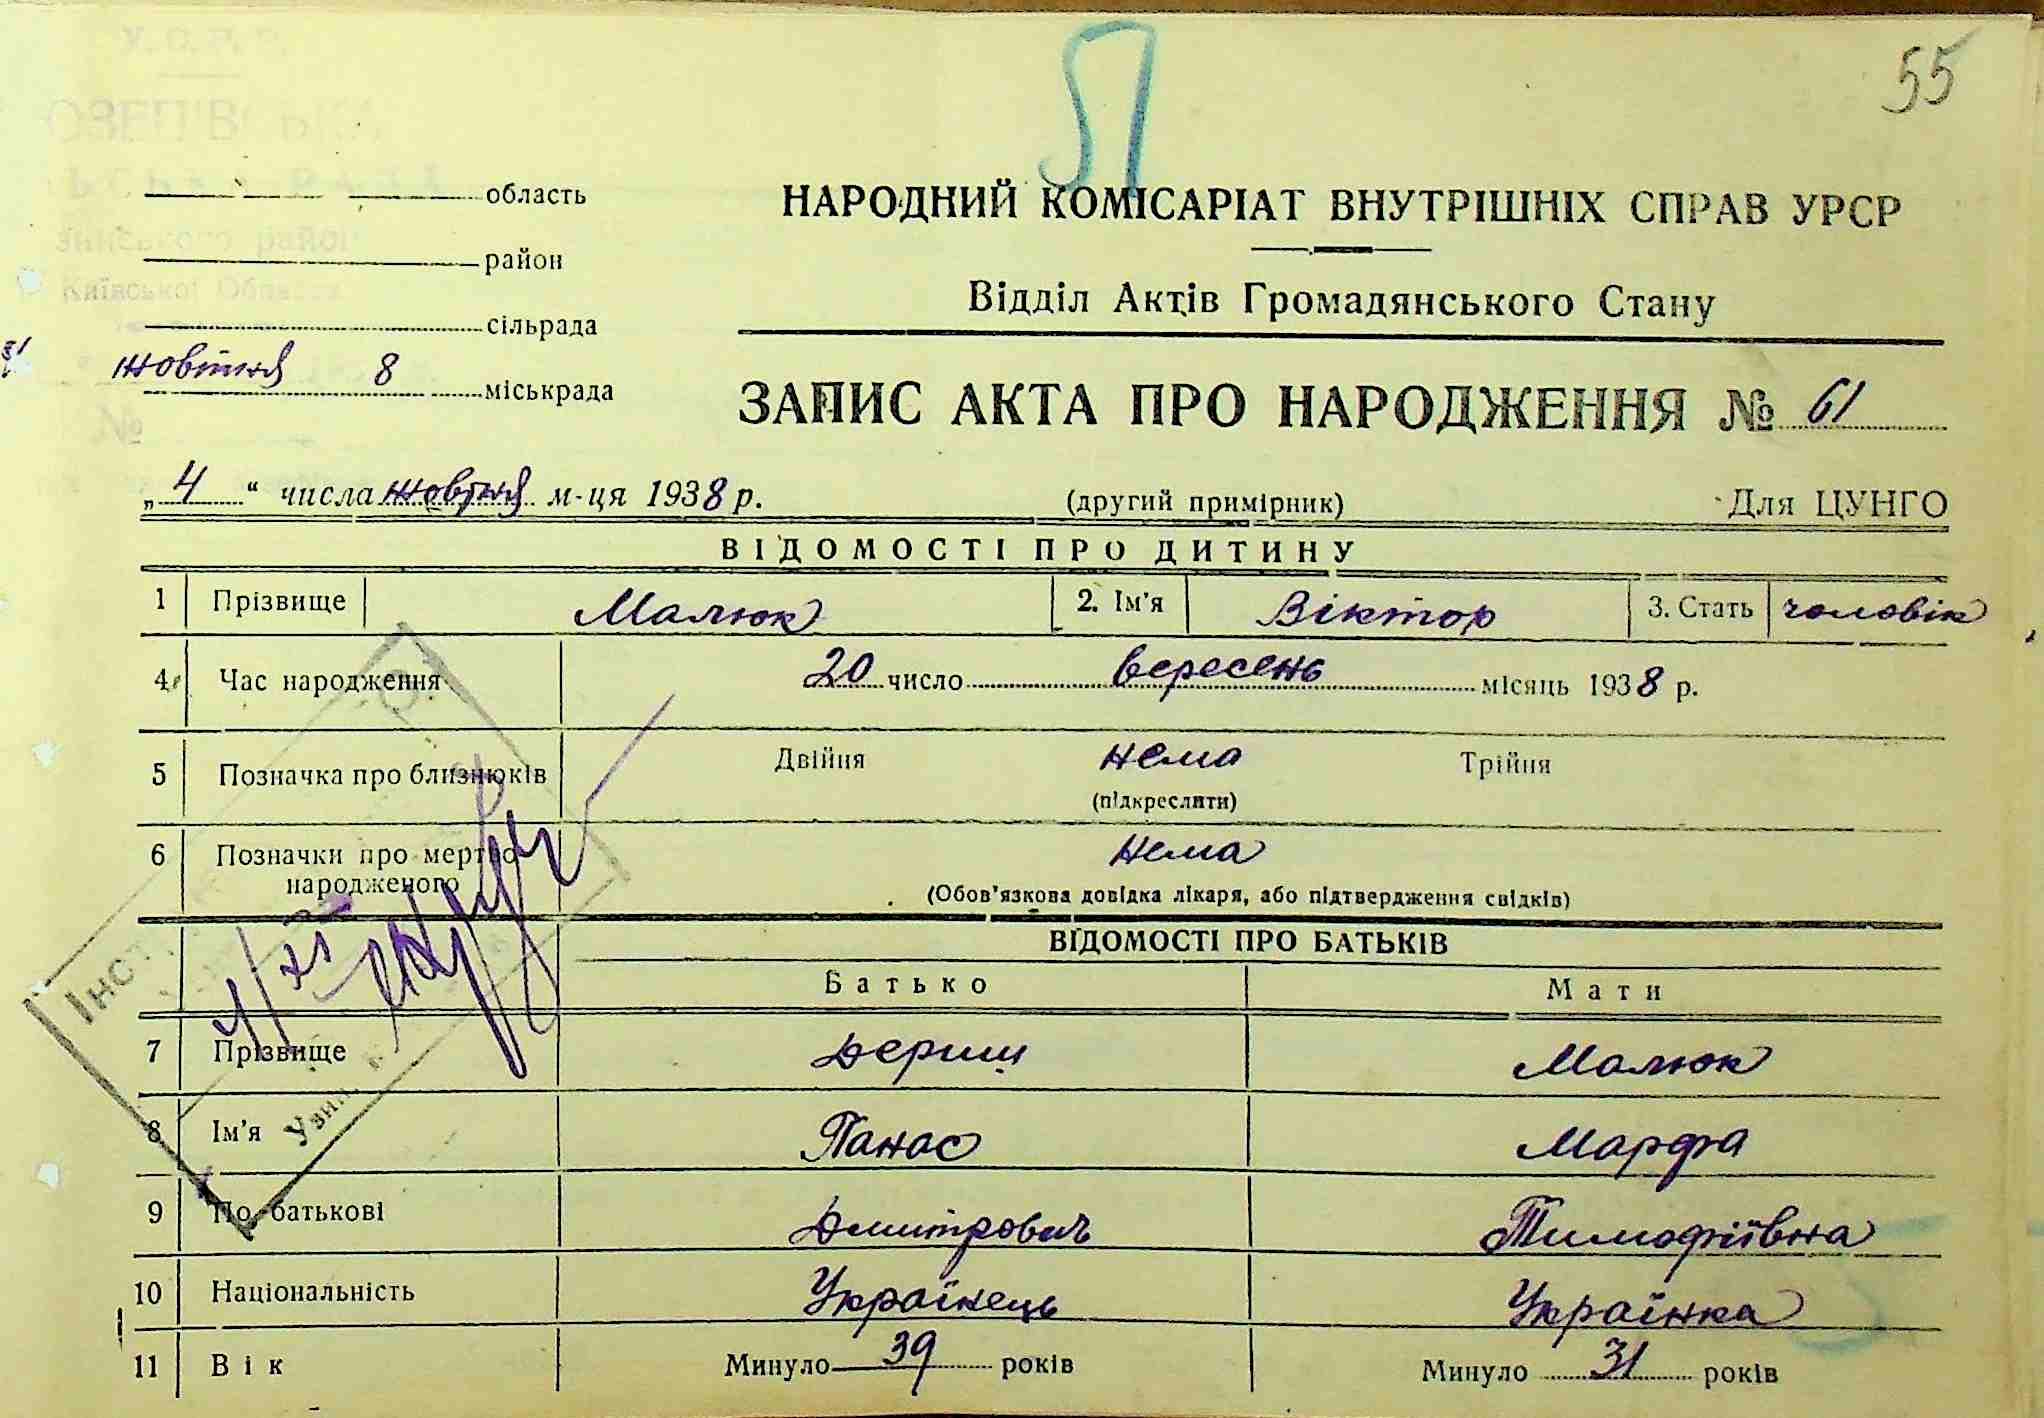 55
область
НАРОДНИЙ КОМІСАРІАТ ВНУТРІШНІХ СПРАВ УРСР
район
Київської Області
Відділ Актів Громадянського Стану
сільрада
жовтня 8 міськрада
ЗАПИС АКТА ПРО НАРОДЖЕННЯ № 61
№
„4“ числа жовтня м-ця 1938 р. (другий примірник) Для ЦУНГО
ВІДОМОСТІ ПРО ДИТИНУ
1 Прізвище Малюк 2. Ім'я Віктор 3. Стать чоловік
4 Час народження 20 число вересень місяць 1938 р.
5 Позначка про близнюків Двійня нема Трійня
(підкреслити)
6 Позначки про мертво народженого нема
(Обов'язкова довідка лікаря, або підтвердження свідків)
ВІДОМОСТІ ПРО БАТЬКІВ
Батько Мати
7 Прізвище Малюк
8 Ім'я Панас Марфа
9 По батькові Дмитрович Тимофіївна
10 Національність Українець Українка
11 Вік Минуло 39 років Минуло 31 років